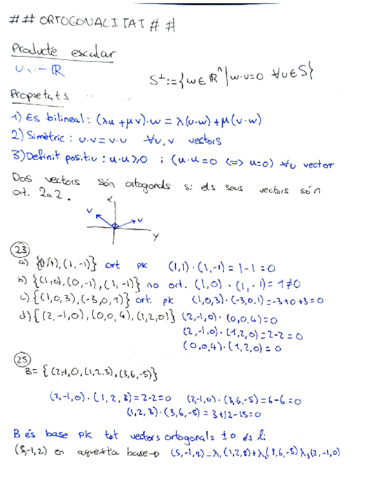 ## ORTOGONALITAT ##
Producte escalar
u·v → ℝ
S⊥:={w∈ℝⁿ | w·u=0 ∀u∈S}
Propietats
1) Es bilineal: (λu+μv)·w = λ(u·w)+μ(v·w)
2) Simètric: u·v=v·u ∀u,v vectors
3) Definit positiu: u·u≥0 i (u·u=0 ⟺ u=0) ∀u vector
Dos vectors són ortogonals si els seus vectors són
ort. 2a2.
x
v
v
y
23
a) {(1,1),(1,-1)} ort pk (1,1)·(1,-1)=1-1=0
b) {(1,0),(0,-1),(1,-1)} no ort. (1,0)·(1,-1)=1≠0
c) {(1,0,3),(-3,0,1)} ort. pk (1,0,3)·(-3,0,1)=-3+0+3=0
d) {(2,-1,0),(0,0,4),(1,2,0)} (2,-1,0)·(0,0,4)=0
(2,-1,0)·(1,2,0)=2-2=0
(0,0,4)·(1,2,0)=0
25
B={(2,-1,0),(1,2,3),(3,6,-5)}
(2,-1,0)·(1,2,3)=2-2=0 (2,-1,0)·(3,6,-5)=6-6=0
(1,2,3)·(3,6,-5)=3+12-15=0
B és base pk tot vectors ortogonals ≠0 és li
(5,-1,2) en aquesta base → (5,-1,2)=λ₁(1,2,3)+λ₂(3,6,-5) λ₃(2,-1,0)